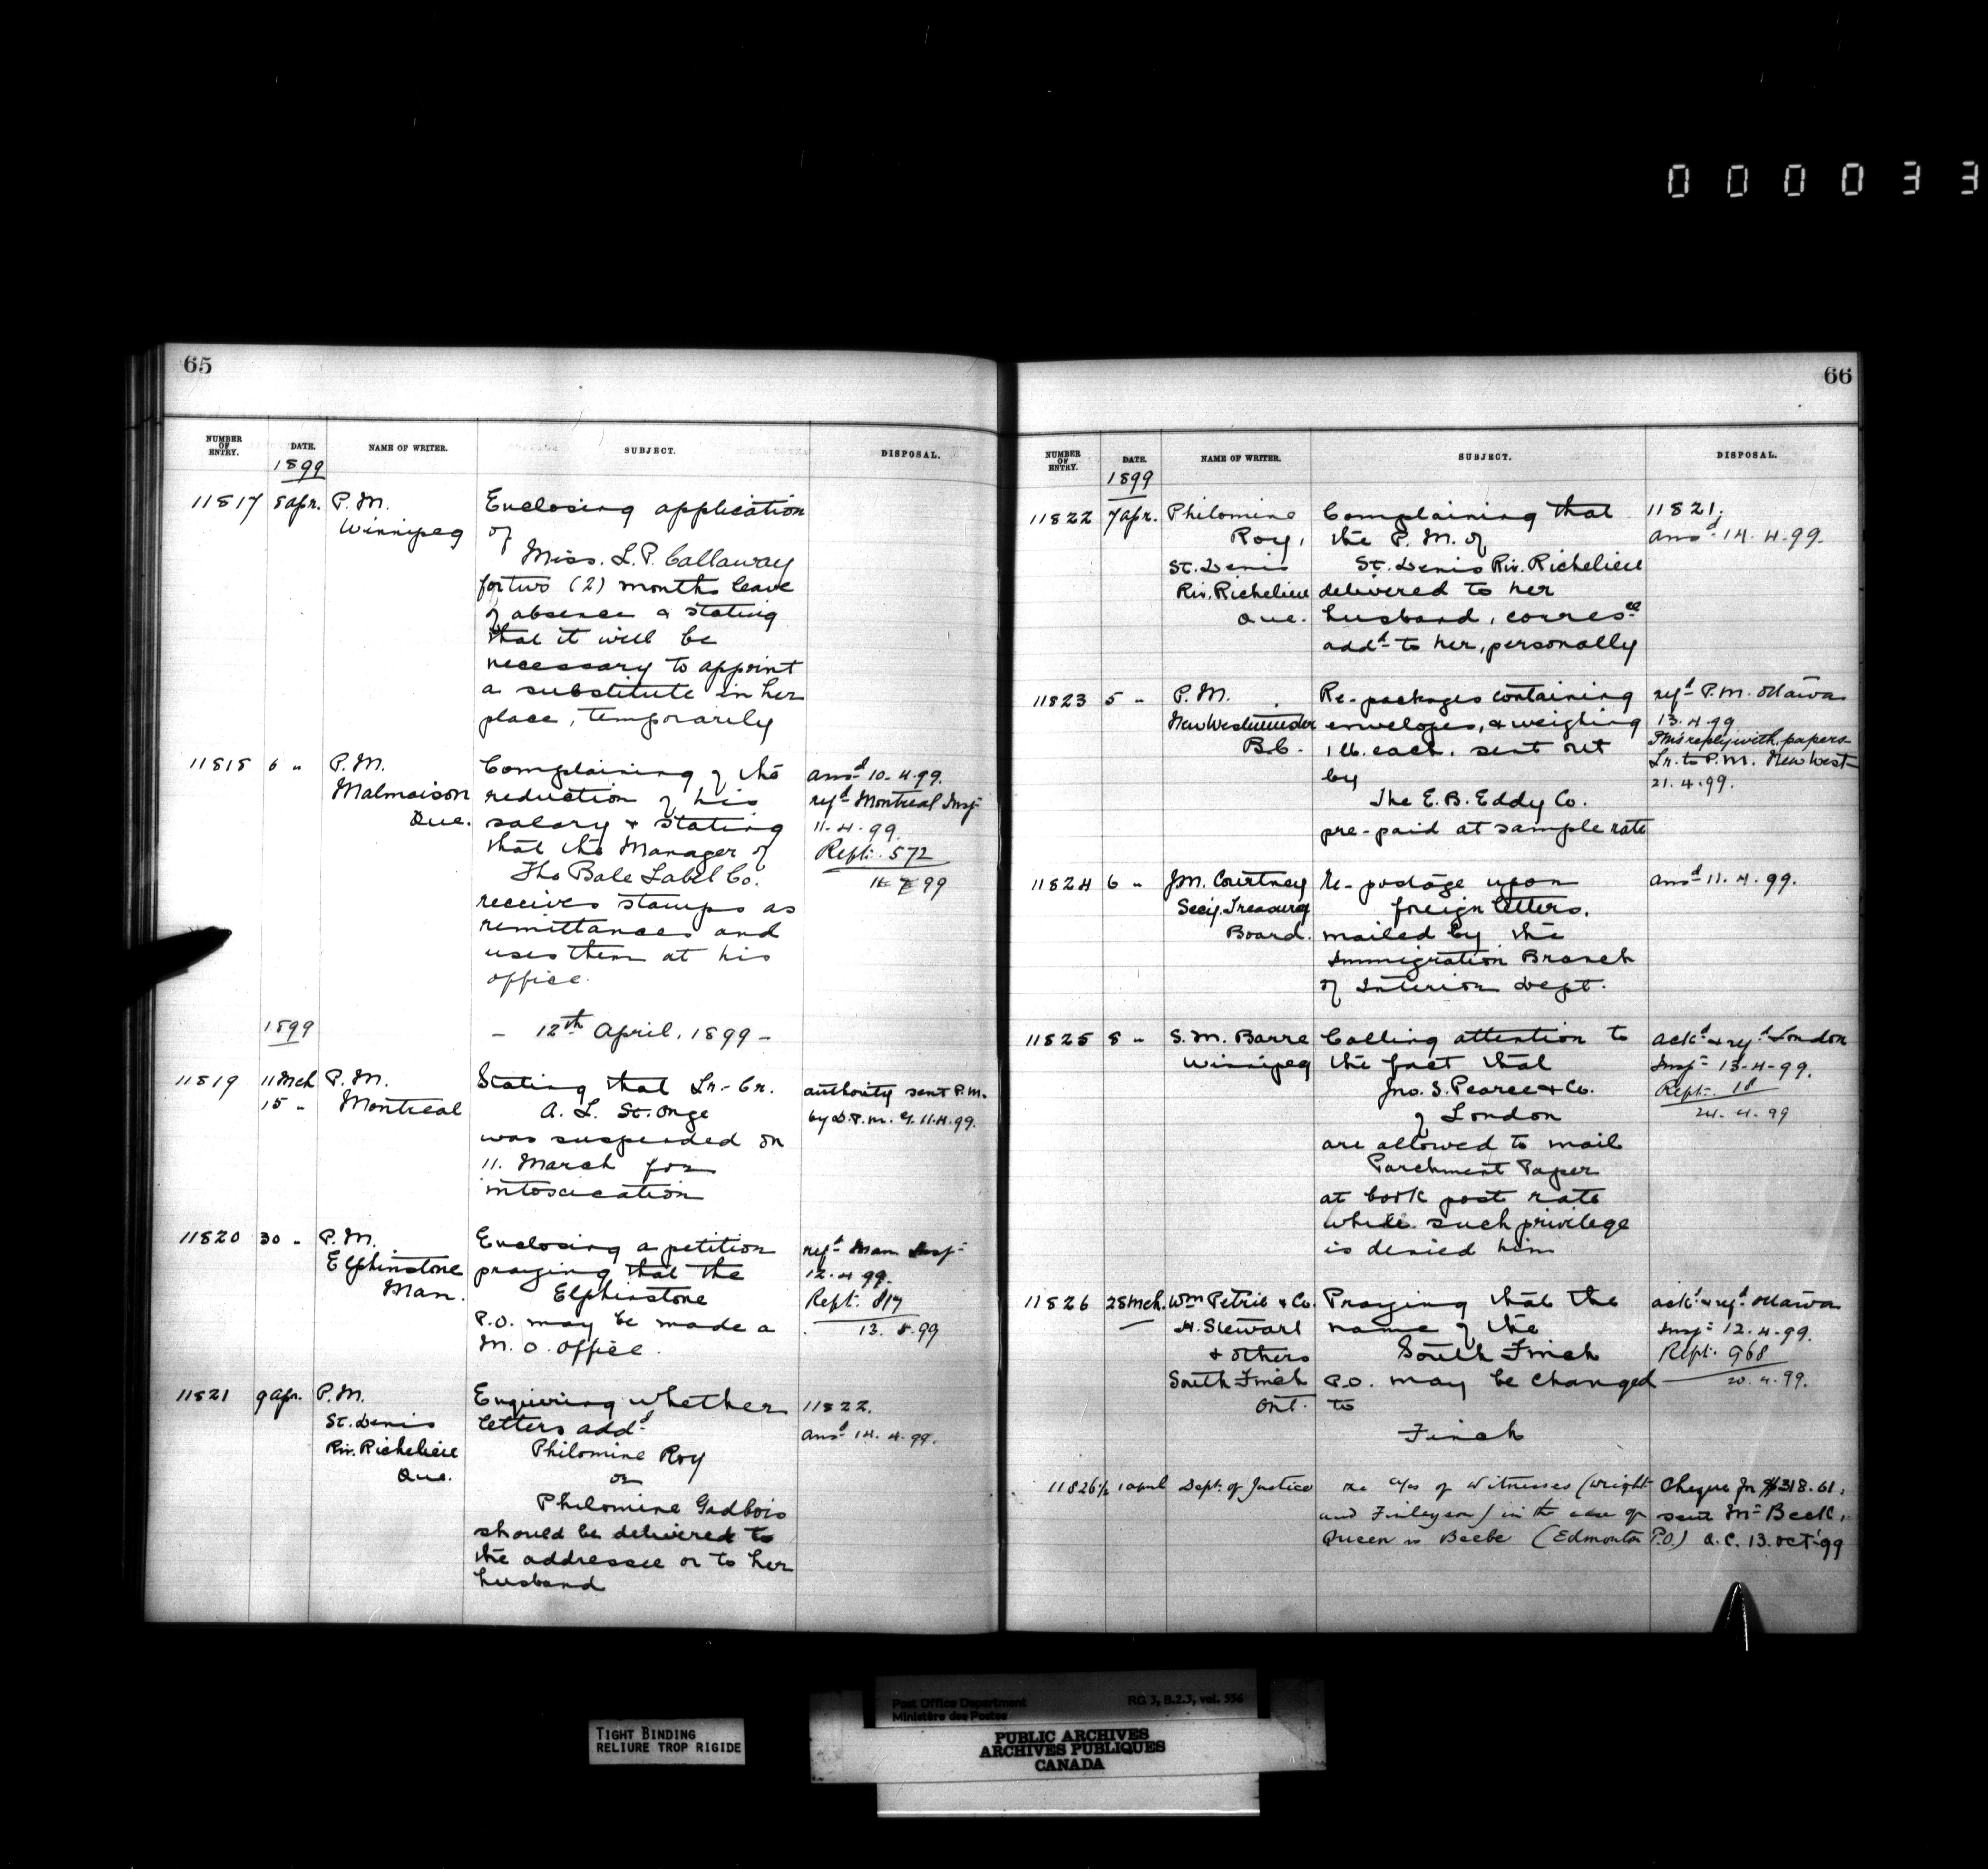 000033
65
NUMBER OF ENTRY. DATE. NAME OF WRITER. SUBJECT. DISPOSAL.
1899
11817 8 Apr. P.M. Winnipeg
Enclosing application
of
Miss. L.P. Callaway
for two (2) months leave
of absence & stating
that it will be
necessary to appoint
a substitute in her
place, temporarily
11818 6 " P.M. Malmaison Que.
Complaining of the
reduction of his
salary & stating
that the Manager of
The Bale Label Co.
receives stamps as
remittances and
uses them at his
office.
ansd 10.4.99.
refd Montreal Insp
11.4.99.
Rept. 572
99
1899
- 12th April, 1899 -
11819 11 Mch 15 " P.M. Montreal
Stating that Lr.-Cr.
A. L. St. Onge
was suspended on
11. March for
intoxication
authority sent P.M.
by D.P.M. G. 11.4.99.
11820 30 " P.M. Elphinstone Man.
Enclosing a petition
praying that the
Elphinstone
P.O. may be made a
M.O. Office.
refd Man Insp
12.4.99.
Rept. 817
13.5.99
11821 9 Apr. P.M. St. Denis Riv. Richelieu Que.
Enquiring whether
letters addd
Philomine Roy
or
Philomine Gadbois
should be delivered to
the addressee or to her
husband
11822.
ansd 14.4.99.
66
NUMBER OF ENTRY. DATE. NAME OF WRITER. SUBJECT. DISPOSAL.
1899
11822 7 Apr. Philomine Roy, St. Denis Riv. Richelieu Que.
Complaining that
the P.M. of
St. Denis Riv. Richelieu
delivered to her
husband, corresce
addd to her, personally
11821;
ansd 14.4.99.
11823 5 " P.M. New Westminster B.C.
Re-packages containing
envelopes, & weighing
1 lb. each. sent out
by
The E.B. Eddy Co.
pre-paid at sample rate
refd P.M. Ottawa
13.4.99
PM's reply with papers
Lr. to P.M. New West
21.4.99.
11824 6 " J.M. Courtney Secy. Treasury Board.
Re-postage upon
foreign letters,
mailed by the
Immigration Branch
of Interior Dept.
ansd 11.4.99.
11825 8 " S.M. Barre Winnipeg
Calling attention to
the fact that
Jno. S. Pearce & Co.
of London
are allowed to mail
Parchment Paper
at book post rate
while such privilege
is denied him
ackd & refd London
Insp 13-4-99.
Rept. 18
24.4.99
11826 28 Mch. Wm Petrie & Co. H. Stewart & others South Finch Ont.
Praying that the
name of the
South Finch
P.O. may be changed
to
Finch
ackd & refd Ottawa
Insp 12.4.99.
Rept. 968
20.4.99.
11826½ 1 april Dept. of Justice
re a/cs of Witnesses (Wright
and Finlayson) in the case of
Queen vs Beebe (Edmonton P.O.)
Cheque for $318.61,
sent Mr Beck,
Q.C. 13. Oct '99
Post Office Department RG 3, B.2.3, vol. 556
Ministère des Postes
TIGHT BINDING
RELIURE TROP RIGIDE
PUBLIC ARCHIVES
ARCHIVES PUBLIQUES
CANADA